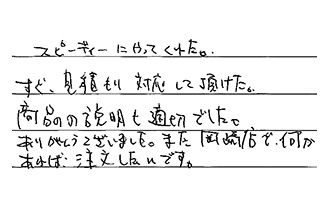 スピーディーにやってくれた。
すぐ、見積もり対応して頂けた。
商品の説明も適切でした。
ありがとうございました。また岡崎店で何か
あれば注文したいです。